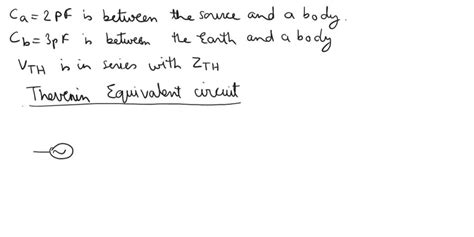 Ca = 2PF is between the source and a body.
Cb = 3pF is between the Earth and a body
VTH is in series with ZTH
Thevenin Equivalent circuit